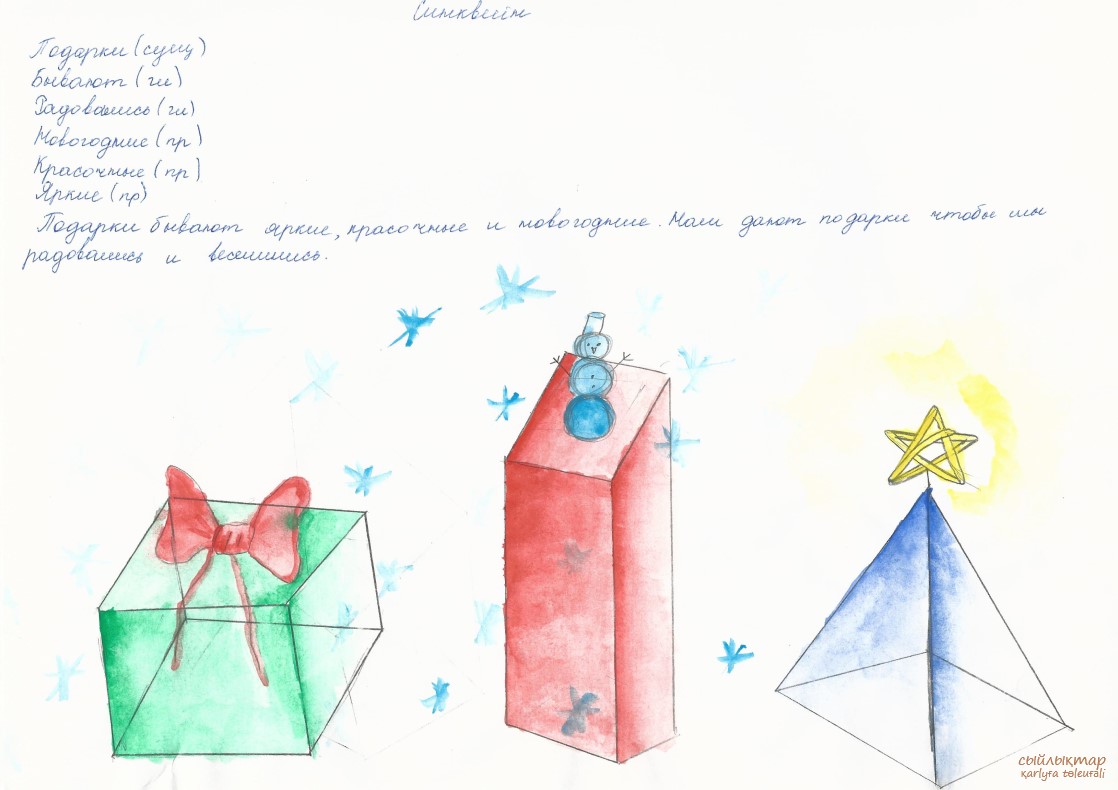 Синквейн
Подарки (сущ)
Бывают (гл)
Радовались (гл)
Новогодние (пр)
Красочные (пр)
Яркие (пр)
Подарки бывают яркие, красочные и новогодние. Нам дают подарки чтобы мы
радовались и веселились.
сыйлықтар
qarlyfa toleufali